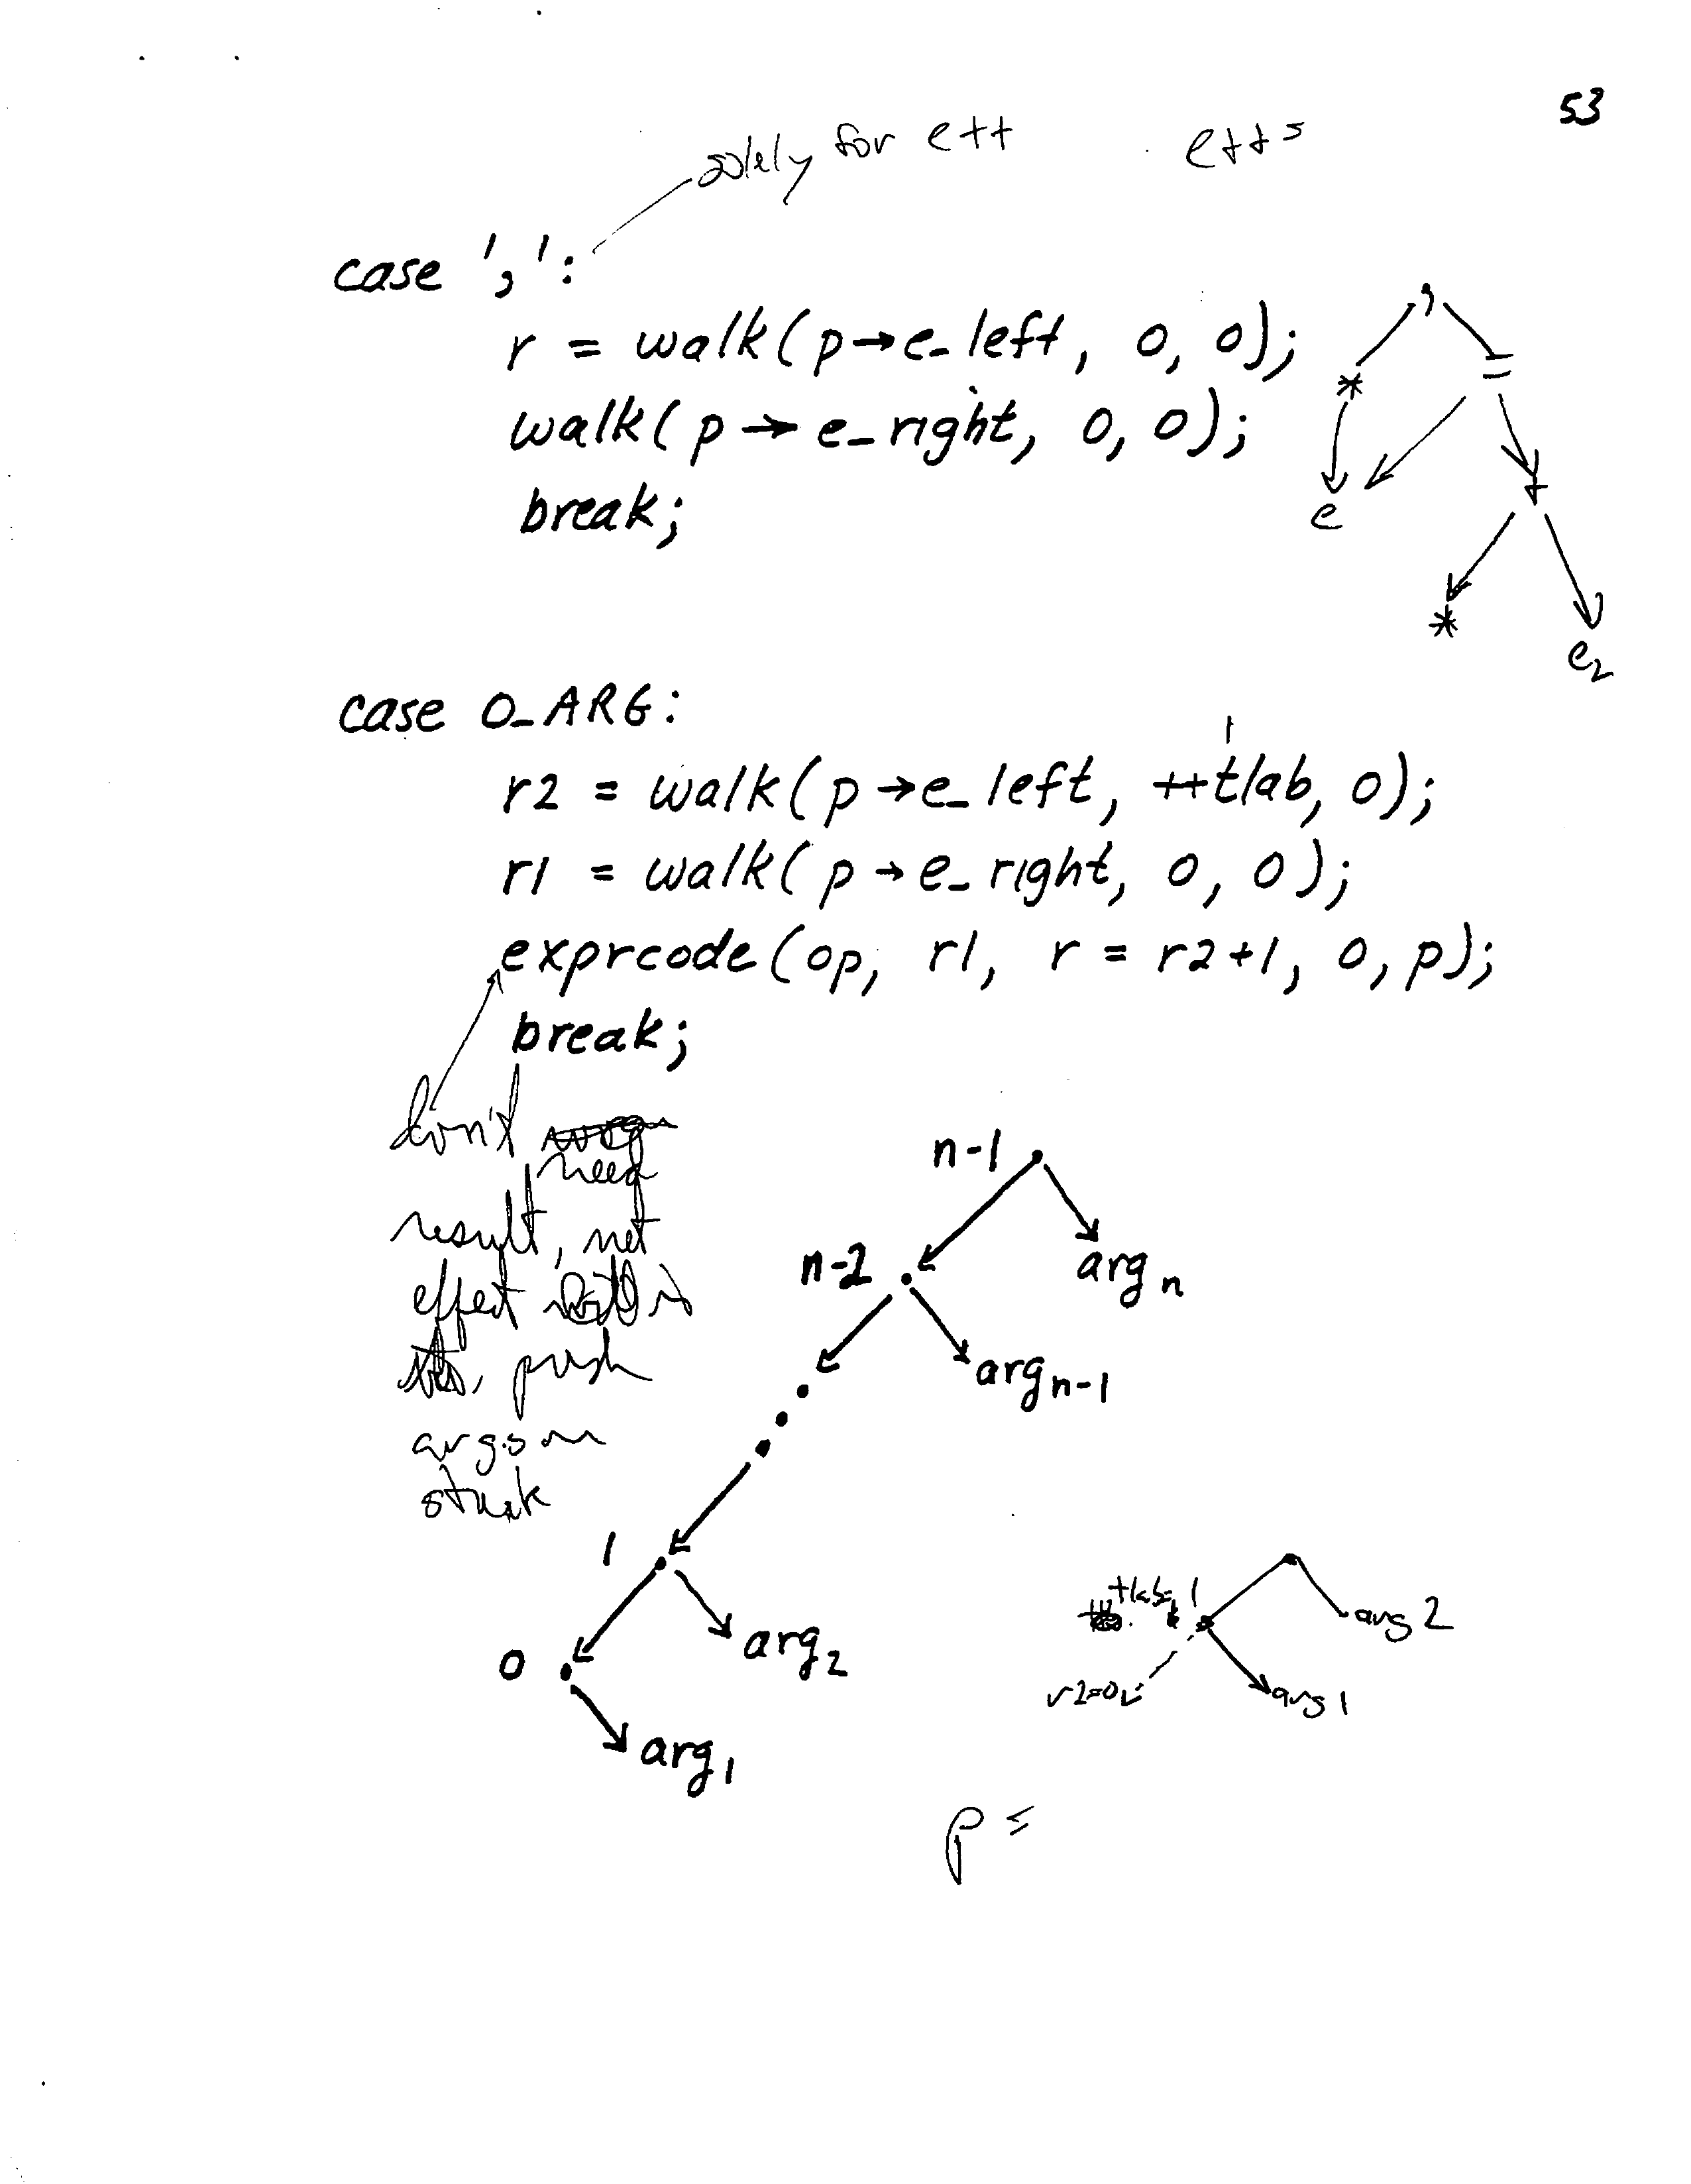 53
solely for e++
e++ =
case ',':
r = walk(p→e_left, 0, 0);
walk(p→e_right, 0, 0);
break;
,
* =
e +
*
e2
case O_ARG:
1
r2 = walk(p→e_left, ++tlab, 0);
r1 = walk(p→e_right, 0, 0);
exprcode(op, r1, r = r2+1, 0, p);
break;
don't
need
result, net
effect is
push
args on
stack
n-1
n-2 argn
argn-1
1
0 arg2
arg1
tlab=1
arg2
r2=0
arg1
p =